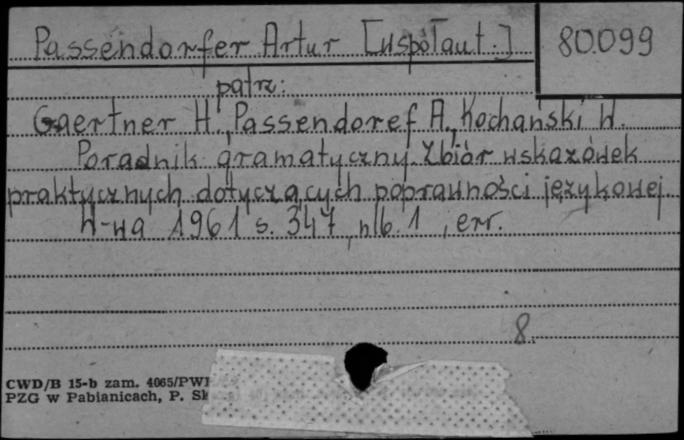 Passendorfer Artur [współaut.]
80.099
patrz:
Gaertner H., Passendoref A., Kochański W.
Poradnik gramatyczny. Zbiór wskazówek
praktycznych dotyczących poprawności językowej
W-wa 1961 s. 347, nlb. 1, err.
8.
CWD/B 15-b zam. 4065/PW
PZG w Pabianicach, P. Sk